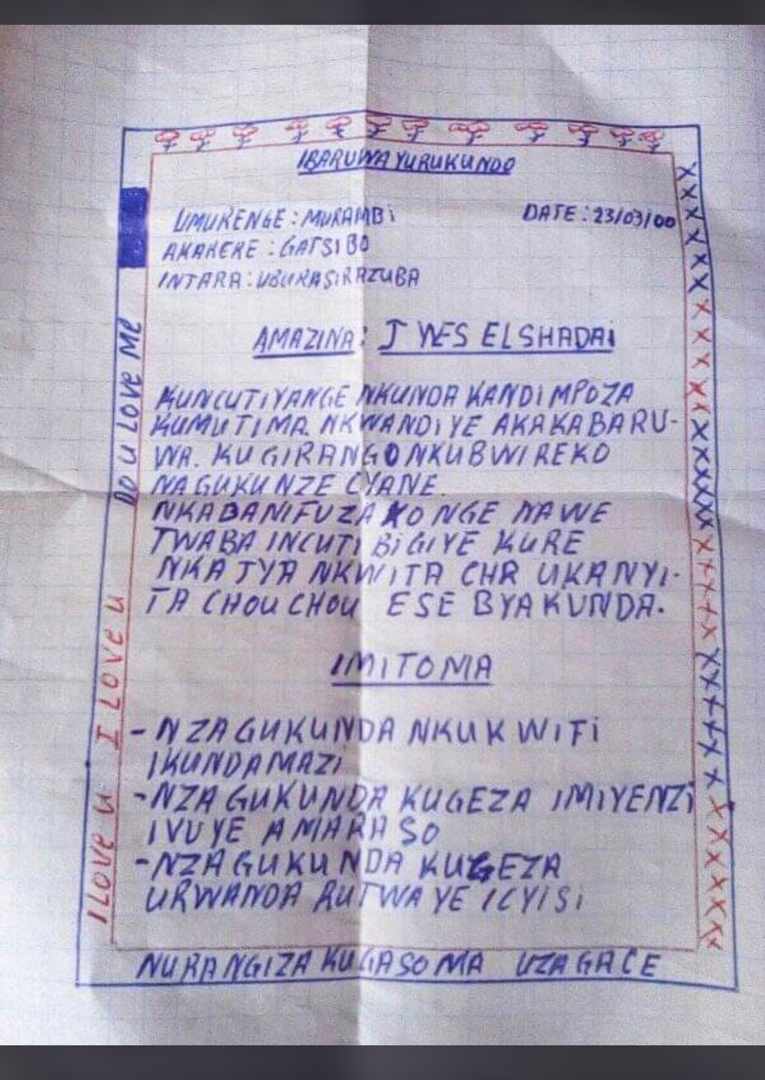 IBARUWA YURUKUNDO
UMURENGE : MURAMBi
DATE : 23/03/00
AKARERE : GATSIBO
INTARA : UBURASIRAZUBA
AMAZINA : J YVES ELSHADAI
KUNCUTIYANGE NKUNDA KANDI MPOZA
KUMUTIMA. NKWANDIYE AKAKABARU-
WA. KUGIRANGO NKUBWIREKO
NAGUKUNZE CYANE.
NKABA NIFUZAKO NGE NAWE
TWABA INCUTI BIGIYE KURE
NKAJYA NKWITA CHR UKANYI-
TA CHOUCHOU ESE BYAKUNDA.
IMITOMA
- NZAGUKUNDA NKUKWIFI
IKUNDAMAZI
- NZAGUKUNDA KUGEZA IMIYENZI
IVUYE AMARASO
- NZAGUKUNDA KUGEZA
URWANDA RUTWAYE ICYISI
NURANGIZA KUGASOMA UZAGACE
I Love u I Love u DO u Love Me